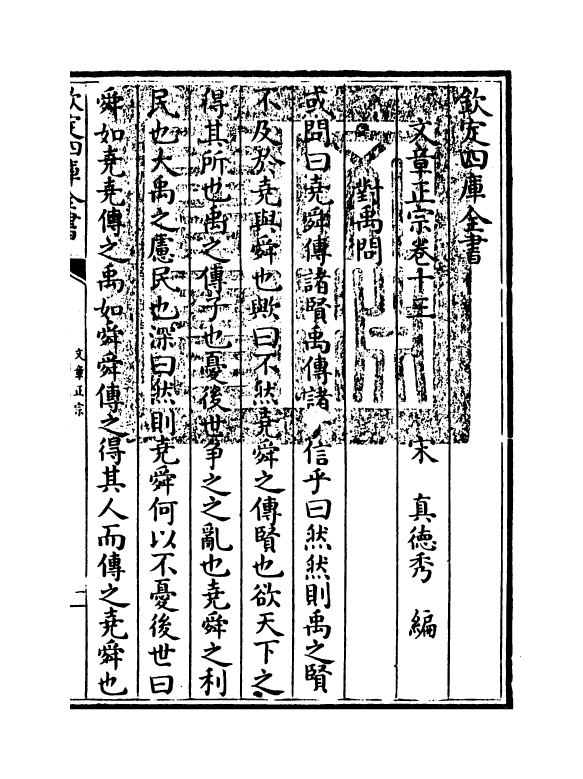 欽定四庫全書
文章正宗卷十三　宋　真德秀　編
對禹問
或問曰堯舜傳諸賢禹傳諸　信乎曰然然則禹之賢
不及於堯與舜也歟曰不然堯舜之傳賢也欲天下之
得其所也禹之傳子也憂後世爭之之亂也堯舜之利
民也大禹之慮民也深曰然則堯舜何以不憂後世曰
舜如堯堯傳之禹如舜舜傳之得其人而傳之堯舜也
欽定四庫全書
文章正宗
一